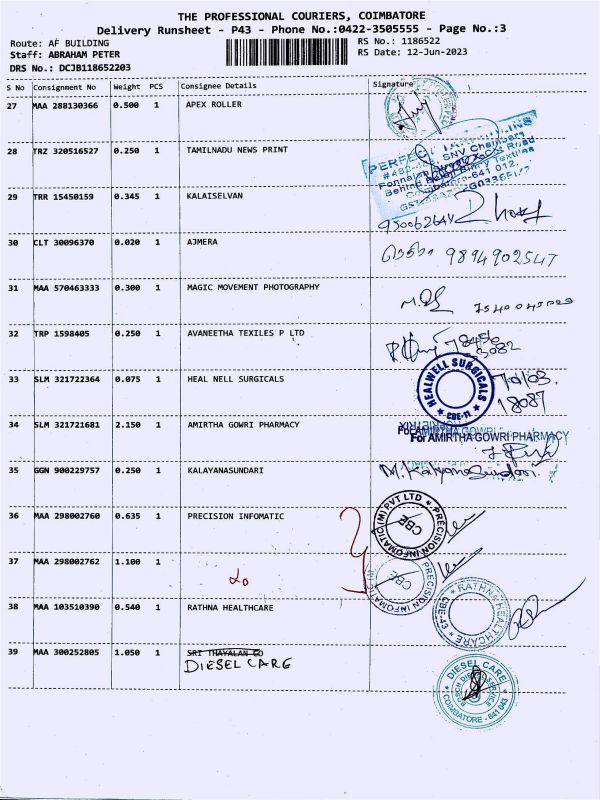 THE PROFESSIONAL COURIERS, COIMBATORE
Delivery Runsheet - P43 - Phone No.:0422-3505555 - Page No.:3
Route: AF BUILDING
RS No.: 1186522
Staff: ABRAHAM PETER
RS Date: 12-Jun-2023
DRS No.: DCJB118652203
S No Consignment No Weight PCS Consignee Details Signature
27 MAA 288130366 0.500 1 APEX ROLLER
28 TRZ 320516527 0.250 1 TAMILNADU NEWS PRINT
PERFECT
SNV Chambers
Road
Behind Textiles
Coimbatore-641 012.
29 TRR 15450159 0.345 1 KALAISELVAN
30 CLT 30096370 0.020 1 AJMERA
9894902547
31 MAA 570463333 0.300 1 MAGIC MOVEMENT PHOTOGRAPHY
32 TRP 1598405 0.250 1 AVANEETHA TEXILES P LTD
33 SLM 321722364 0.075 1 HEAL NELL SURGICALS
HEALWELL SURGICALS
CBE-11
18087
34 SLM 321721681 2.150 1 AMIRTHA GOWRI PHARMACY
For AMIRTHA GOWRI PHARMACY
35 GGN 900229757 0.250 1 KALAYANASUNDARI
M. Kalyanasundari
36 MAA 298002760 0.635 1 PRECISION INFOMATIC
PRECISION INFOMATIC(M) PVT LTD
CBE
37 MAA 298002762 1.100 1 do
PRECISION INFOMATIC
CBE
38 MAA 103510390 0.540 1 RATHNA HEALTHCARE
RATHNA HEALTHCARE
CBE-43
39 MAA 300252805 1.050 1 SRI THAYALAN CO
DIESEL CARE
DIESEL CARE
BOSCH DIESEL SERVICE
COIMBATORE - 641 043